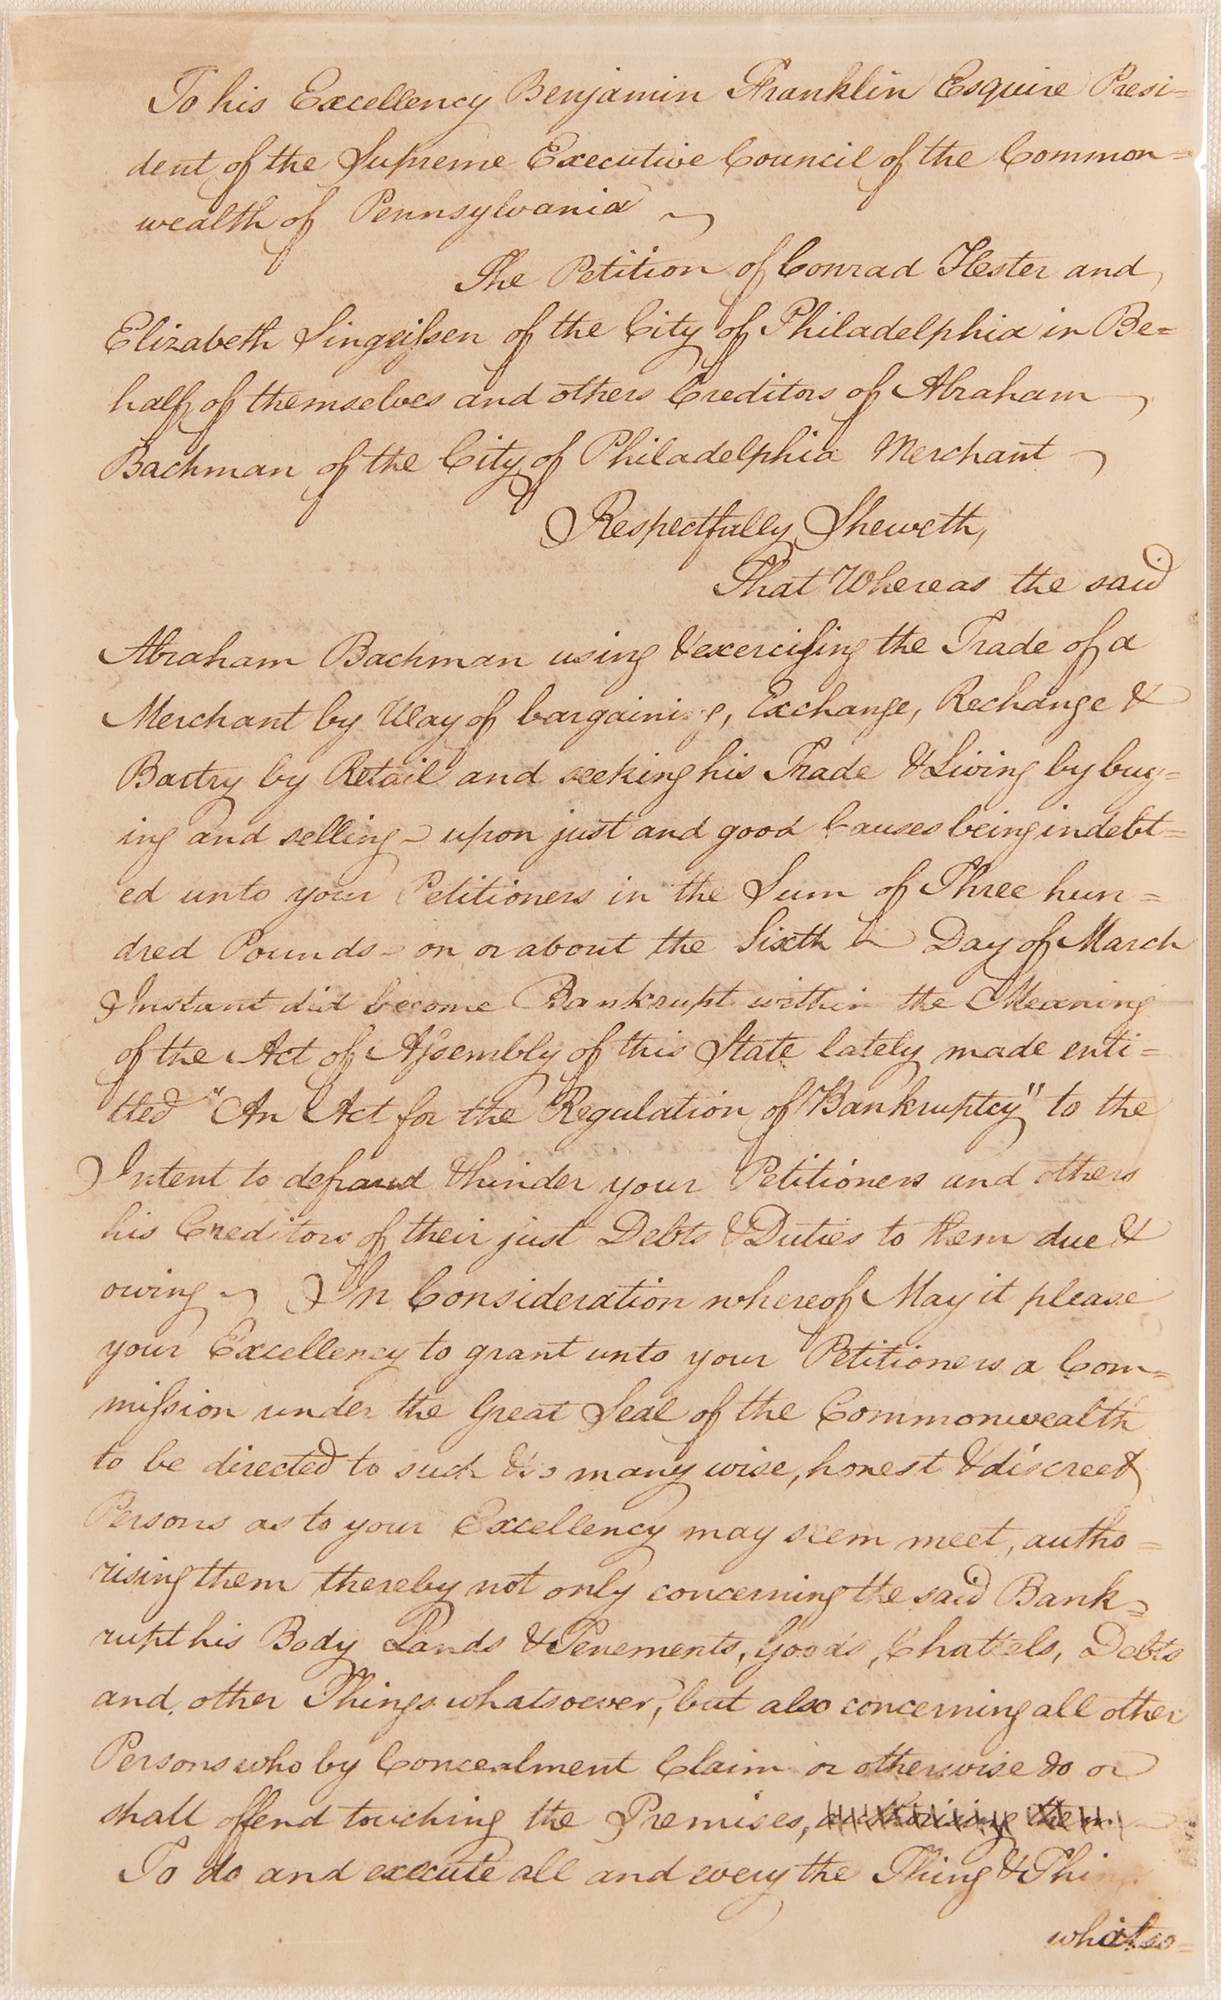 To his Excellency Benjamin Franklin Esquire Presi=
dent of the Supreme Executive Council of the Common=
wealth of Pennsylvania
The Petition of Conrad Hester and
Elizabeth Singeißen of the City of Philadelphia in Be=
half of themselves and others Creditors of Abraham
Bachman of the City of Philadelphia Merchant
Respectfully Sheweth,
That Whereas the said
Abraham Bachman using & exercising the Trade of a
Merchant by Way of bargaining, Exchange, Rechange &
Bartry by Retail and seeking his Trade & Living by buy=
ing and selling – upon just and good Causes being indebt=
ed unto your Petitioners in the Sum of Three hun=
dred Pounds – on or about the Sixth Day of March
Instant did become Bankrupt within the Meaning
of the Act of Assembly of this State lately made enti=
tled "An Act for the Regulation of Bankruptcy" to the
Intent to defraud & hinder your Petitioners and others
his Creditors of their just Debts & Duties to them due &
owing – In Consideration whereof May it please
your Excellency to grant unto your Petitioners a Com=
mission under the Great Seal of the Commonwealth
to be directed to such & as many wise, honest & discreet
Persons as to your Excellency may seem meet, autho=
rising them thereby not only concerning the said Bank=
rupt his Body Lands & Tenements, Goods, Chattels, Debts
and other Things whatsoever, but also concerning all other
Persons who by Concealment Claim or otherwise do or
shall offend touching the Premises, authorising them
To do and execute all and every the Thing & Things
whatso=